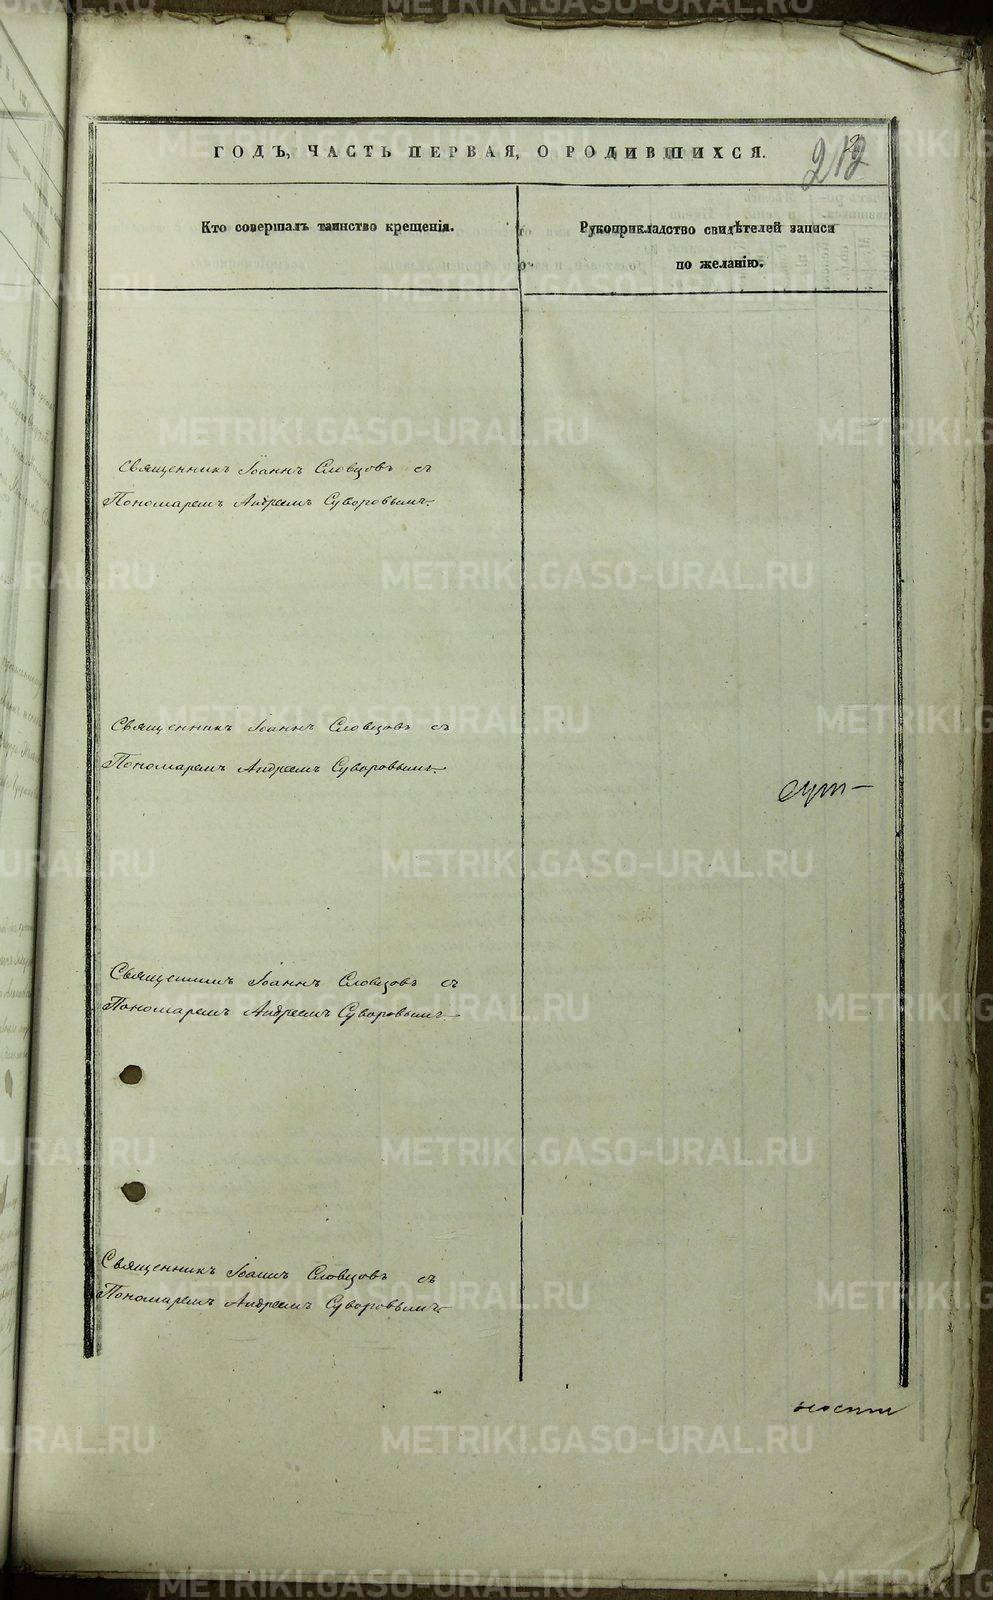 ГОДЪ, ЧАСТЬ ПЕРВАЯ, О РОДИВШИХСЯ.
212
Кто совершалъ таинство крещенія.
Рукоприкладство свидѣтелей записи
по желанію.
Священникъ Іоаннъ Словцовъ съ
Пономаремъ Андреемъ Суворовымъ.
Священникъ Іоаннъ Словцовъ съ
Пономаремъ Андреемъ Суворовымъ.
Священникъ Іоаннъ Словцовъ съ
Пономаремъ Андреемъ Суворовымъ.
Священникъ Іоаннъ Словцовъ съ
Пономаремъ Андреемъ Суворовымъ.
METRIKI.GASO-URAL.RU